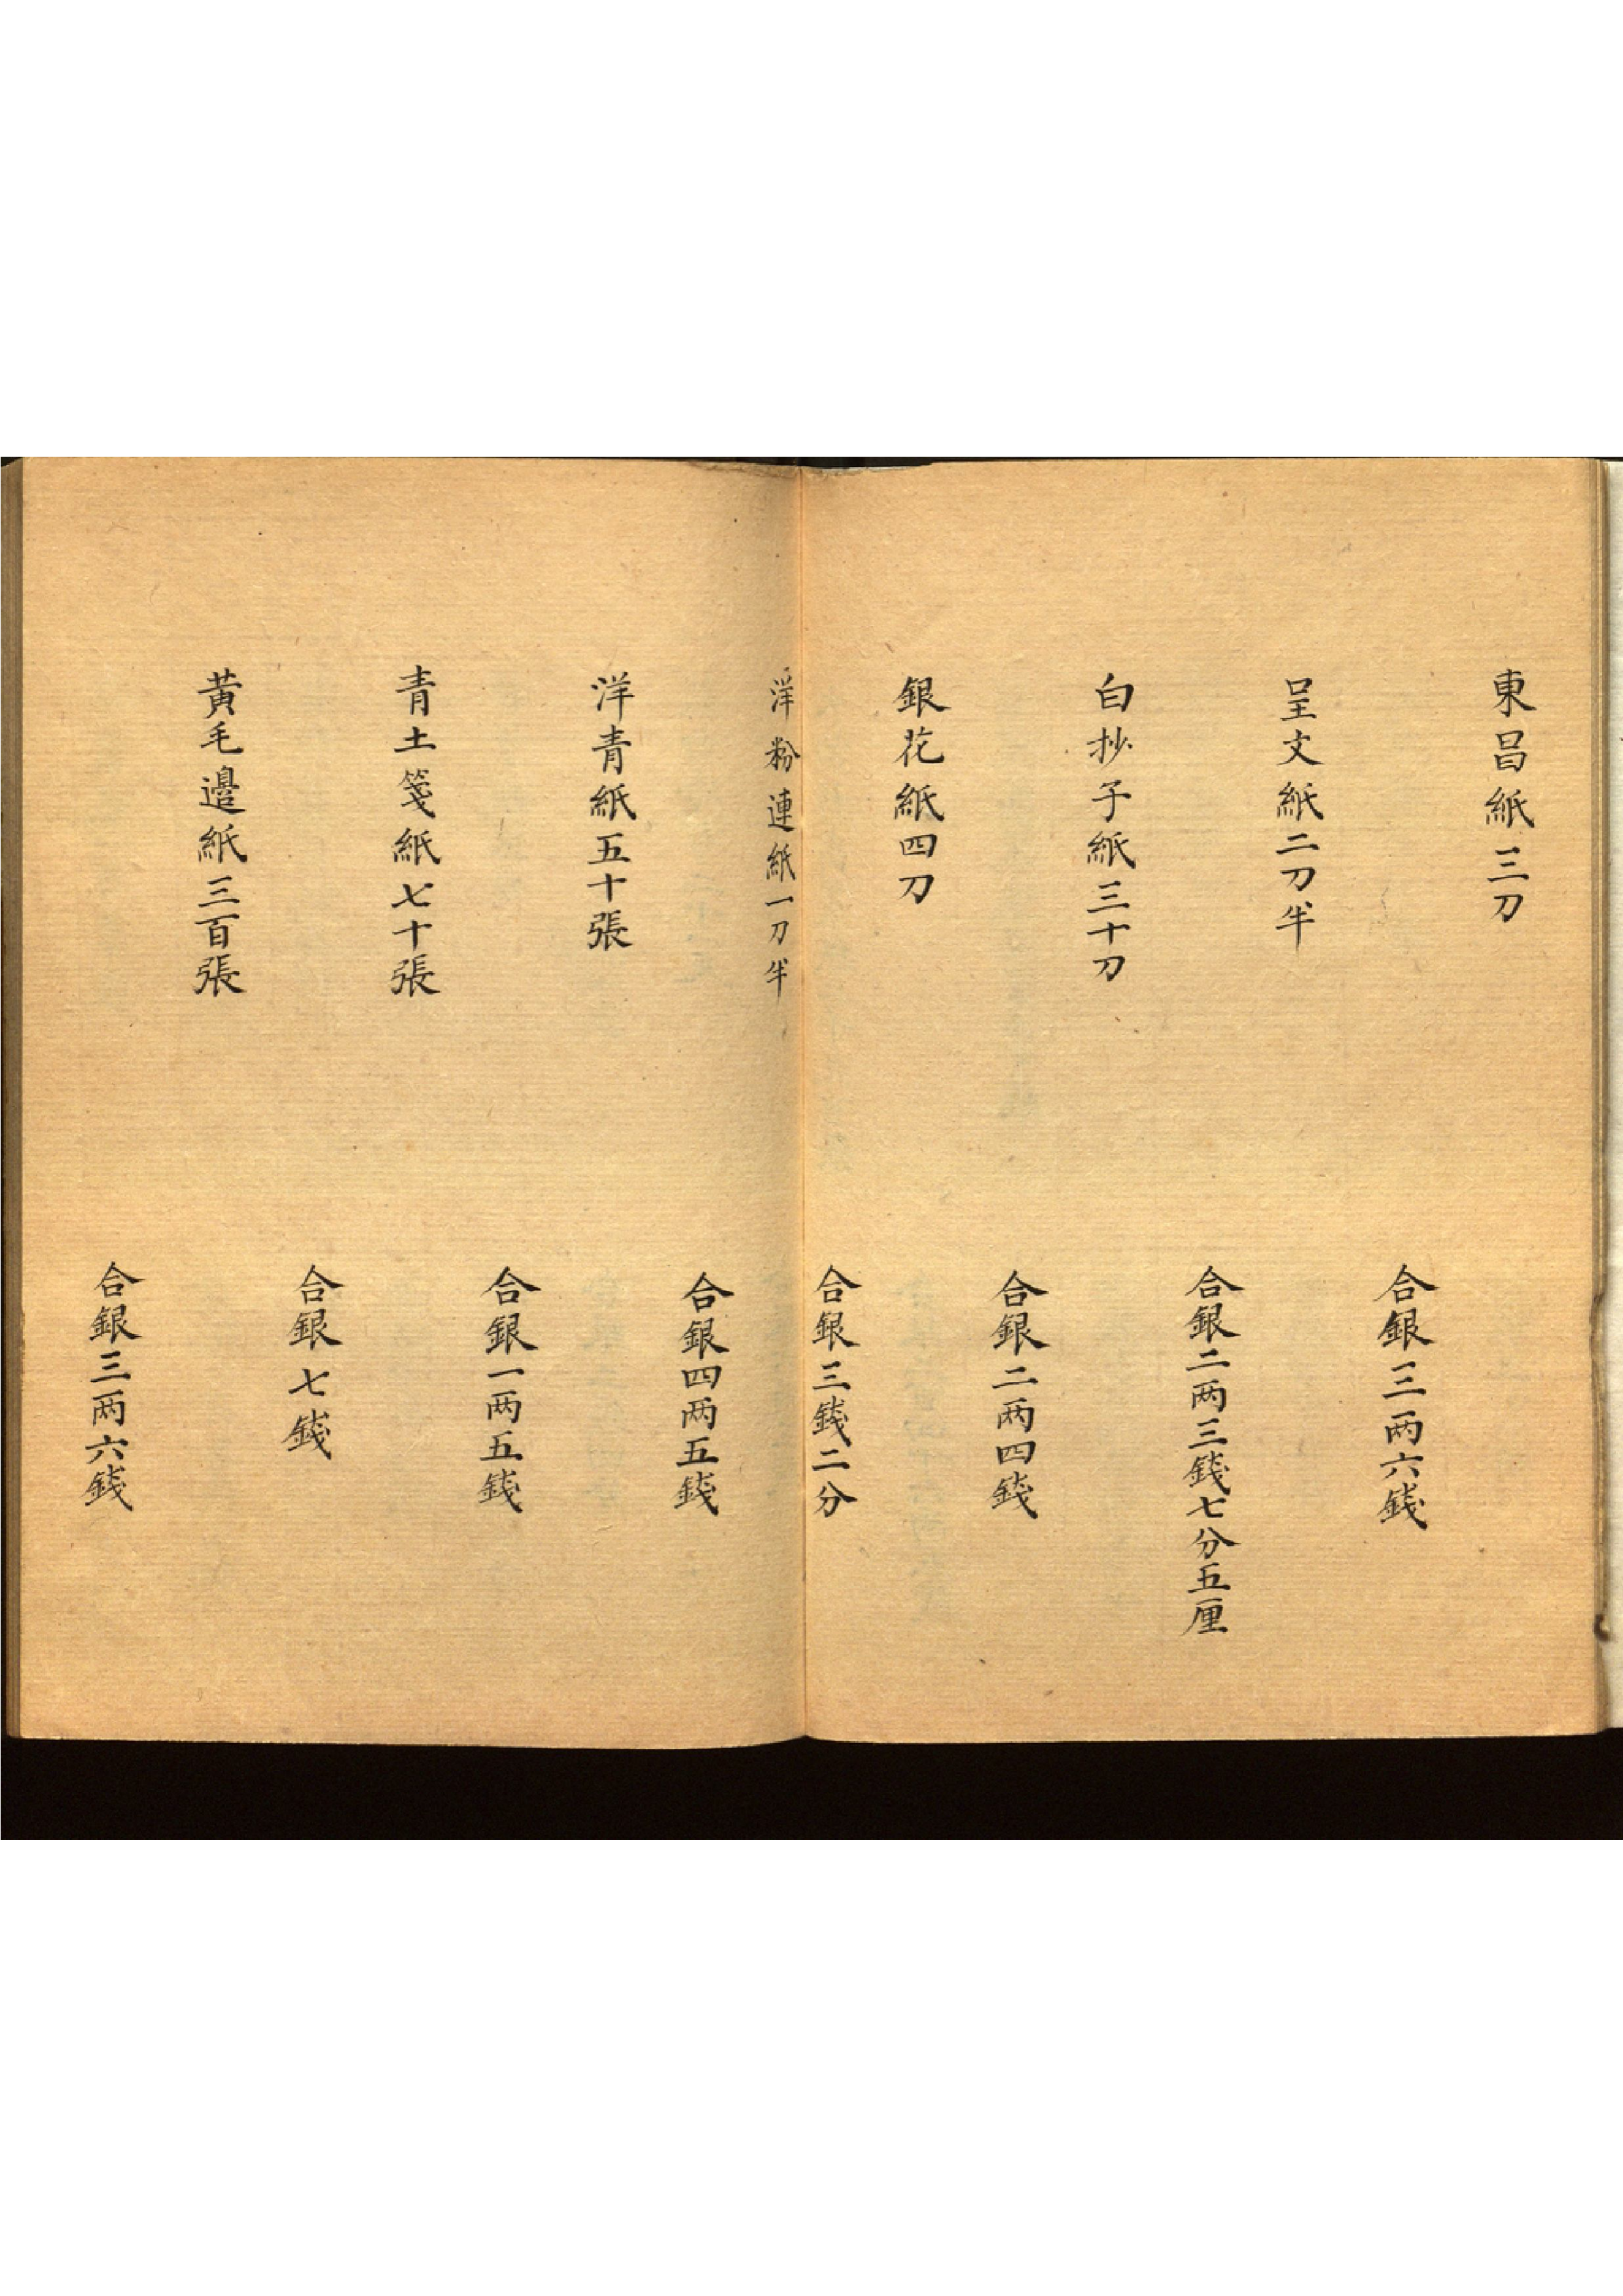 東昌紙三刀
合銀三两六錢
呈文紙二刀半
合銀二两三錢七分五厘
白抄子紙三十刀
合銀二两四錢
銀花紙四刀
合銀三錢二分
洋粉連紙一刀半
合銀四两五錢
洋青紙五十張
合銀一两五錢
青土箋紙七十張
合銀七錢
黃毛邉紙三百張
合銀三两六錢